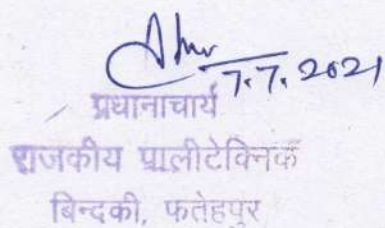 7.7.2021
प्रधानाचार्य
राजकीय पालीटेक्निक
बिन्दकी, फतेहपुर